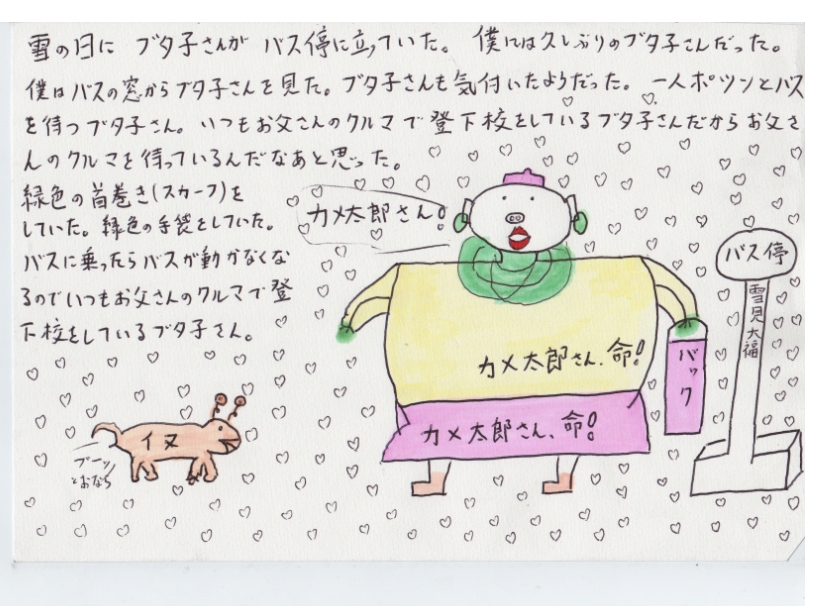 雪の日に ブタ子さんが バス停に立っていた。 僕には久しぶりのブタ子さんだった。
僕はバスの窓からブタ子さんを見た。ブタ子さんも気付いたようだった。一人ポツンとバス
を待つブタ子さん。いつもお父さんのクルマで登下校をしているブタ子さんだからお父さ
んのクルマを待っているんだなあと思った。
緑色の首巻き(スカーフ)を
していた。緑色の手袋をしていた。
バスに乗ったらバスが動かなくな
るのでいつもお父さんのクルマで登
下校をしているブタ子さん。
カメ太郎さん!
バス停
雪見大福
カメ太郎さん、命!
バック
カメ太郎さん、命!
イヌ
ブーッ
とおなら